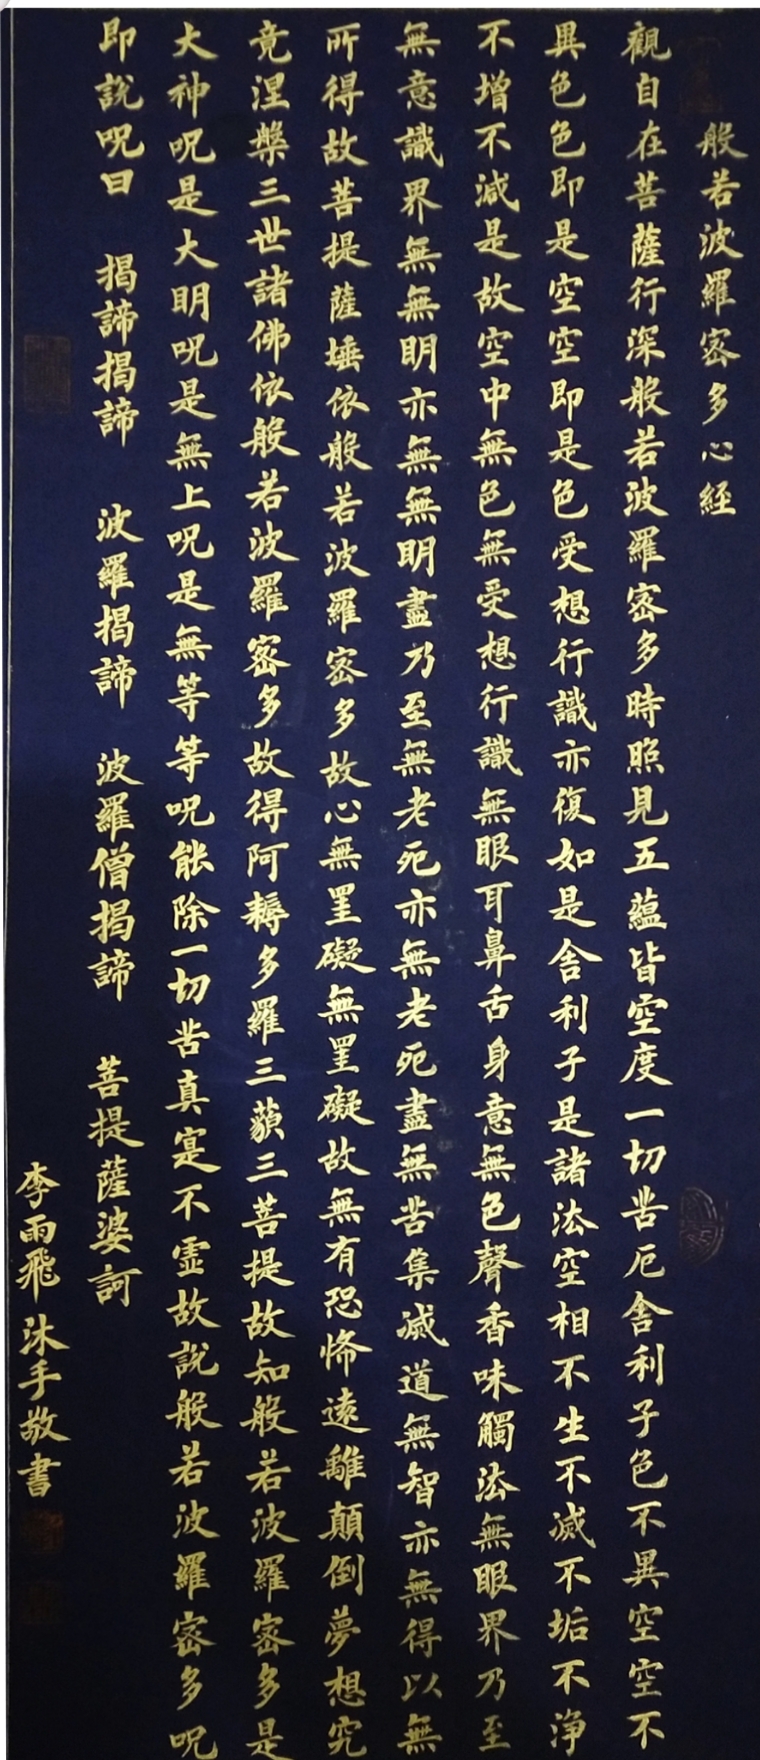 般若波羅密多心経
觀自在菩薩行深般若波羅密多時照見五蘊皆空度一切苦厄舍利子色不異空空不
異色色即是空空即是色受想行識亦復如是舍利子是諸法空相不生不滅不垢不淨
不增不減是故空中無色無受想行識無眼耳鼻舌身意無色聲香味觸法無眼界乃至
無意識界無無明亦無無明盡乃至無老死亦無老死盡無苦集滅道無智亦無得以無
所得故菩提薩埵依般若波羅密多故心無罣礙無罣礙故無有恐怖遠離顛倒夢想究
竟涅槃三世諸佛依般若波羅密多故得阿耨多羅三藐三菩提故知般若波羅密多是
大神呪是大明呪是無上呪是無等等呪能除一切苦真寔不虛故說般若波羅密多呪
即說呪曰 揭諦揭諦 波羅揭諦 波羅僧揭諦 菩提薩婆訶
李雨飛沐手敬書